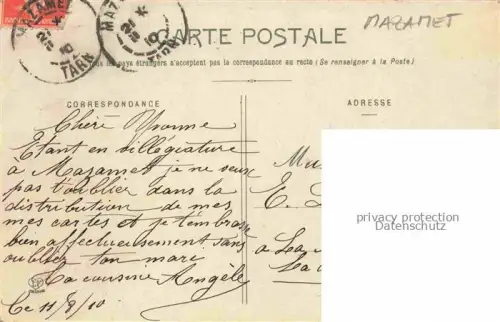 MAZAMET
TARN
MAZ
TARN
MAZAMET
CARTE POSTALE
les pays étrangers n'acceptent pas la correspondance au recto (Se renseigner à la Poste)
CORRESPONDANCE
ADRESSE
Chère Yvonne
Etant en villégiature
a Mazamet je ne veux
pas t'oublier dans la
distribution de mes
mes cartes et je t'embrasse
bien affectueusement sans
oublier ton mari
ta cousine Angèle
Ce 11/8/10
E.
a La
privacy protection
Datenschutz